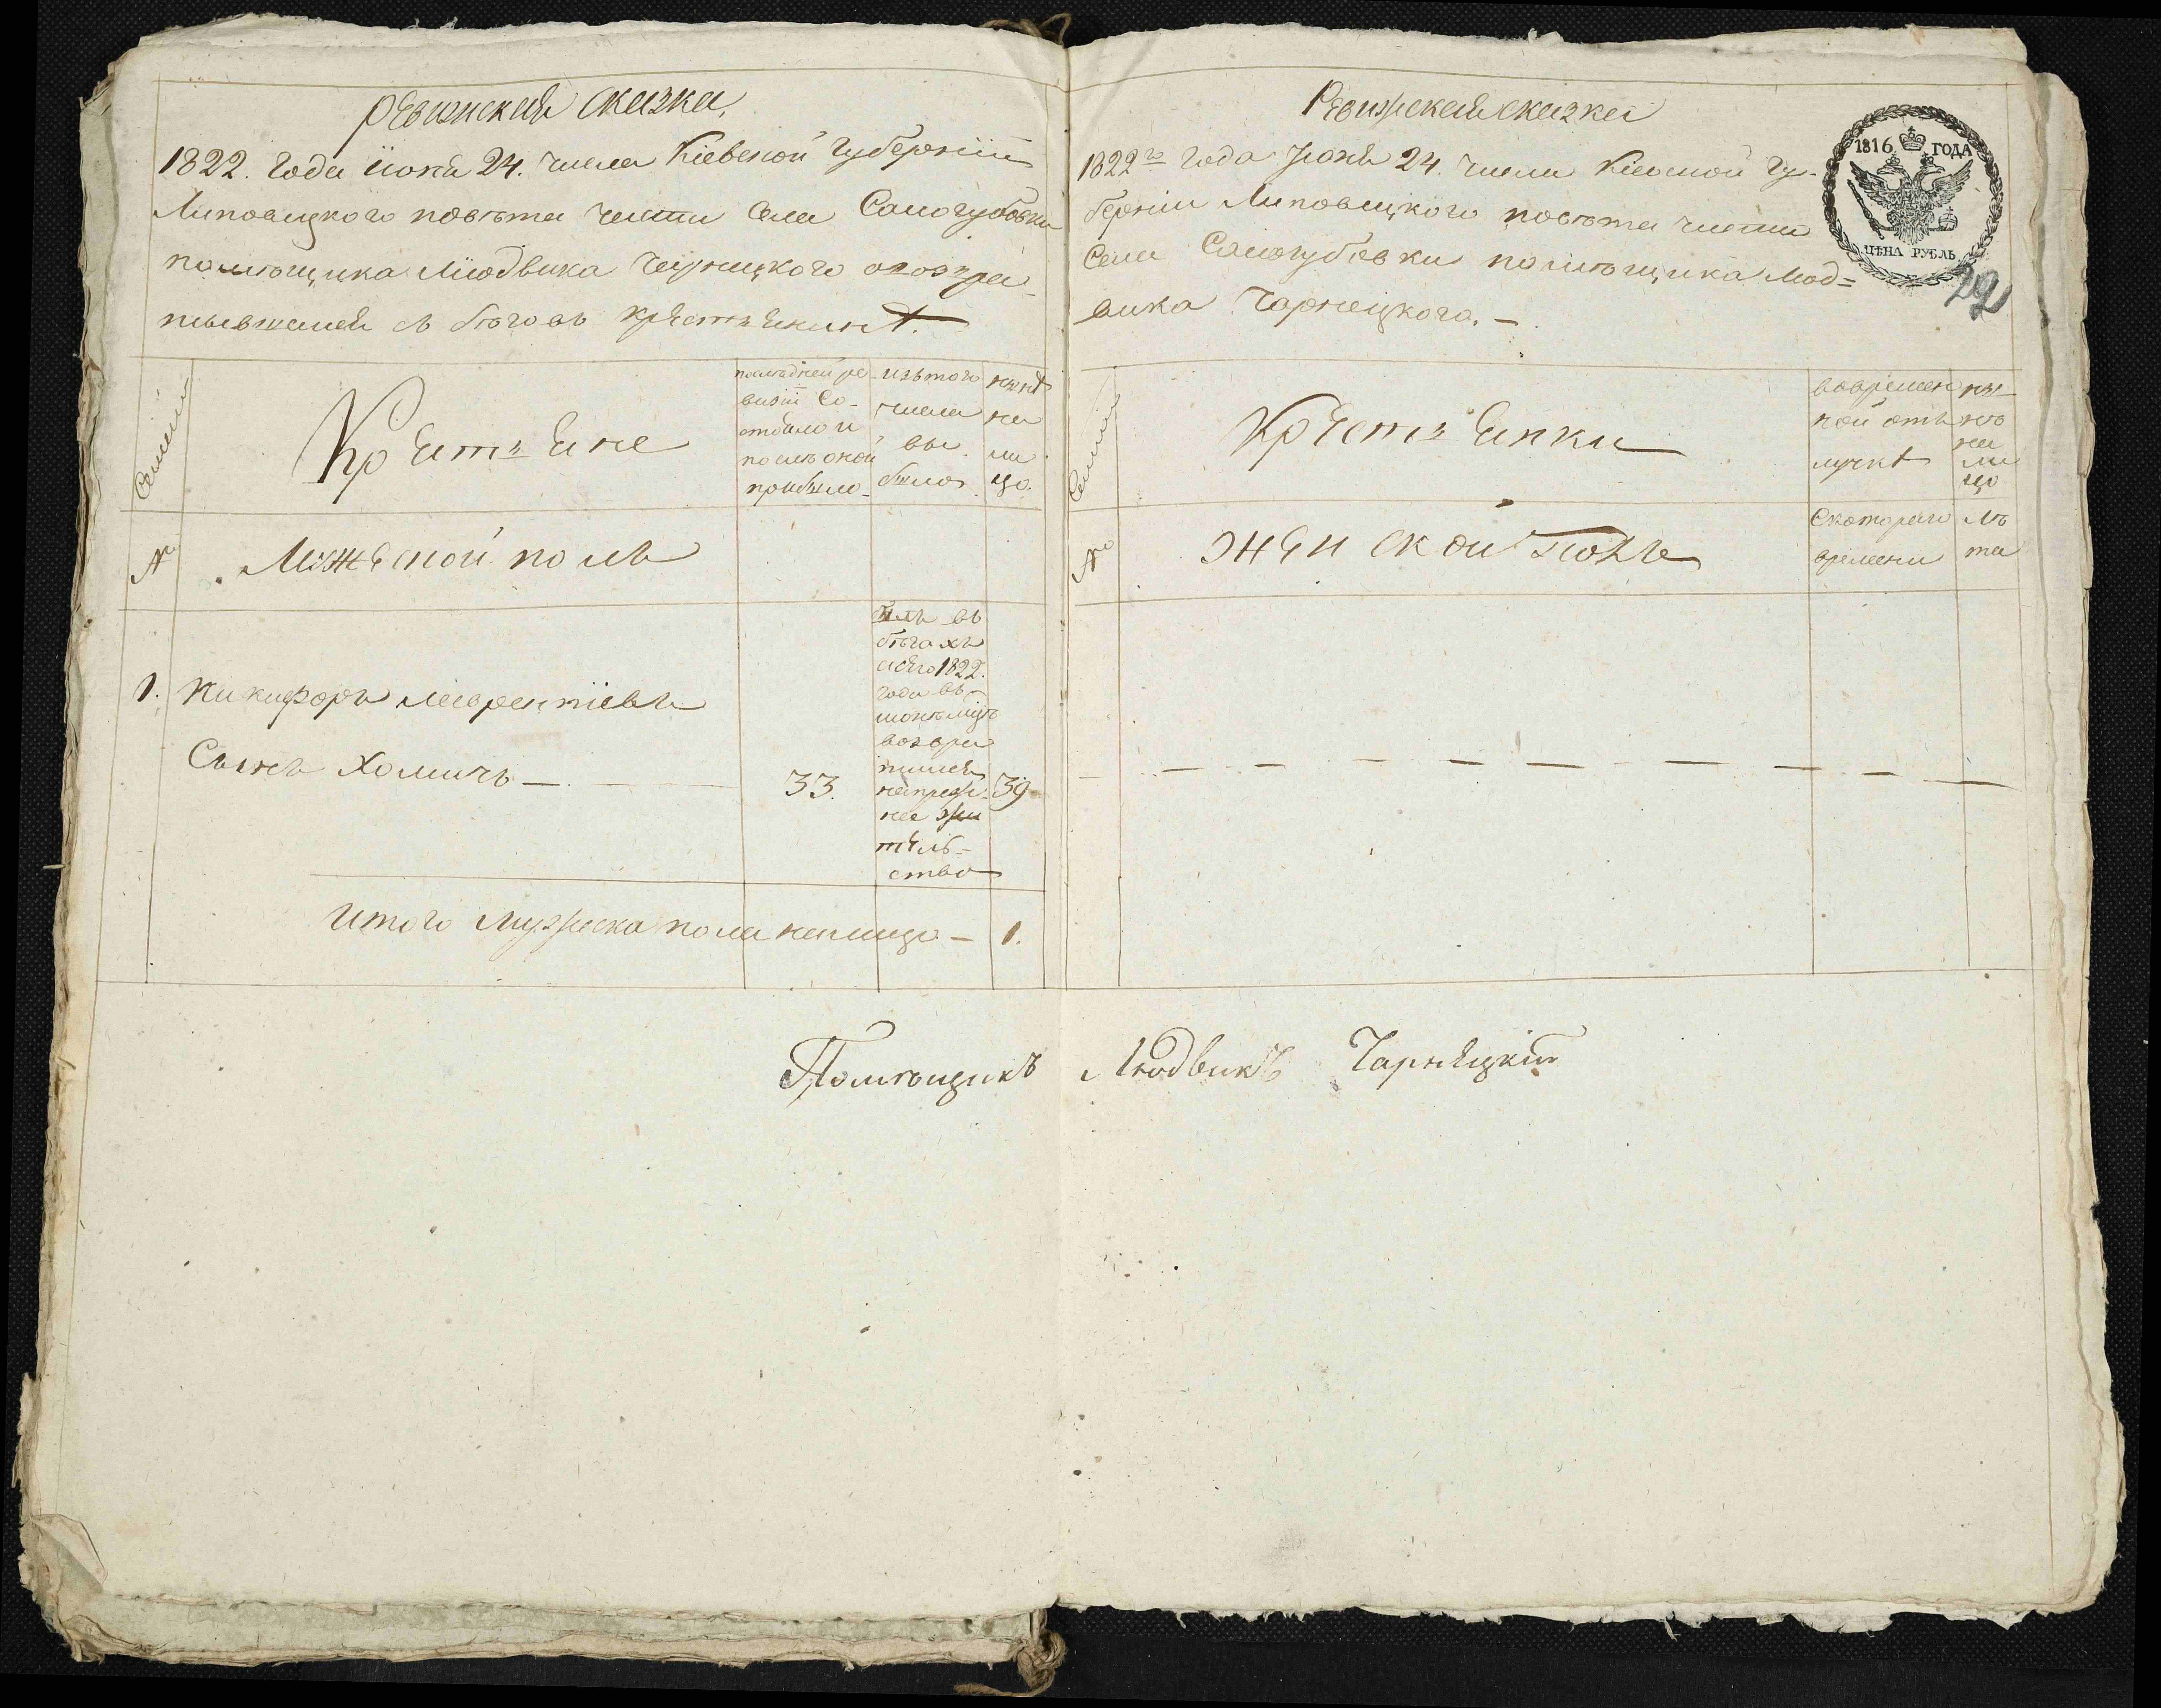 Ревизская сказка,
1822. года июня 24. числа Кіевской губерніи
Липовецкого повѣта части села Самогубовки
помѣщика Людвика Чарнецкого о возвра-
тывшемся съ бѣговъ крестьянинѣ.
Семіи
Крестьяне
последней ре-
визіи со-
стояло и
послѣ оной
прибыло
изъ того
числа
вы
было
нынѣ
на
ли
цо.
№
Мужеской полъ
1. Никифоръ Лаврентіевъ
Сынъ Хомичъ — 33. 39
былъ въ
бѣгахъ
а сего 1822.
года въ
июнѣ мцѣ
возвра
тился
на преж-
нее жи
тель-
ство
Итого мужеска пола на лицо — 1.
Ревижская сказка
1822го года июня 24. числа Кіевской гу-
берніи Липовецкого повѣта части
села Самогубовки помѣщика Люд=
вика Чарнецкого. —
1816 ГОДА
ЦѢНА РУБЛЬ
22
Семіи
Крестьянки
во времен
ной отъ
лучкѣ
ны
нѣ
на
ли
цо
№
женской полъ
С котораго
времени
лѣ
та
Помѣщикъ Людвикъ Чарнецкій